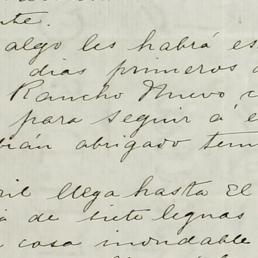 nte.
algo les habrá es
dias primeros
Rancho Nuevo
para seguir á e
bián abrigado tem
il llega hasta El
de siete leguas
cosa inondable